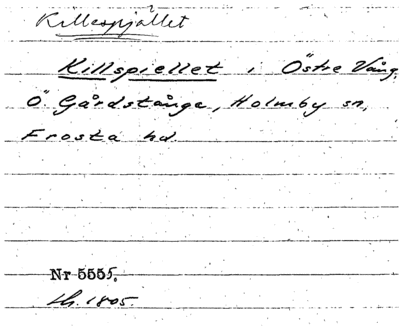 Killespjället
Killspiellet i Östre Vång,
Ö. Gårdstånga, Holmby sn,
Frosta hd.
Nr 5555.
Lh. 1805.